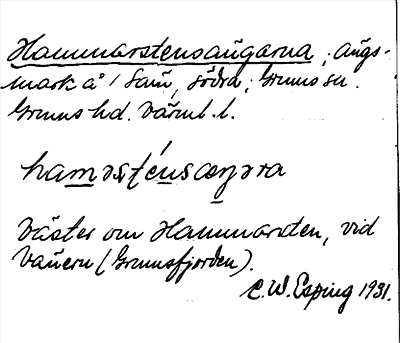 Hammarstensängarna, ängs-
mark å / Sann, södra, Grums sn.
Grums hd. Värml. l.
haməʂt́ensæŋəra
Väster om Hammarsten, vid
Vänern (Grumsfjorden).
C.W. Esping 1931.